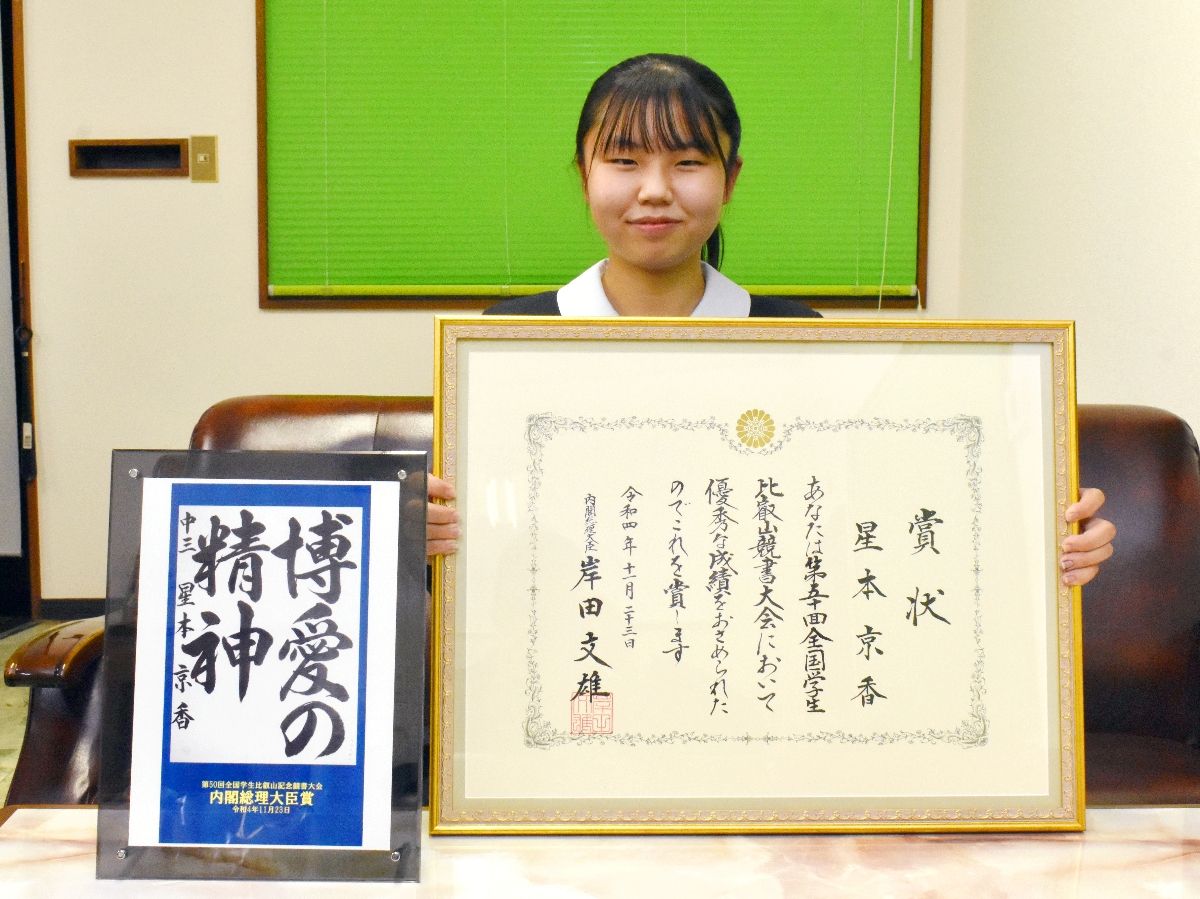 博愛の
精神
中三 星本京香
第50回全国学生比叡山記念競書大会
内閣総理大臣賞
令和4年11月23日
賞状
星本京香
あなたは第五十回全国学生
比叡山競書大会において
優秀な成績をおさめられた
のでこれを賞します
令和四年十一月二十三日
内閣総理大臣 岸田文雄